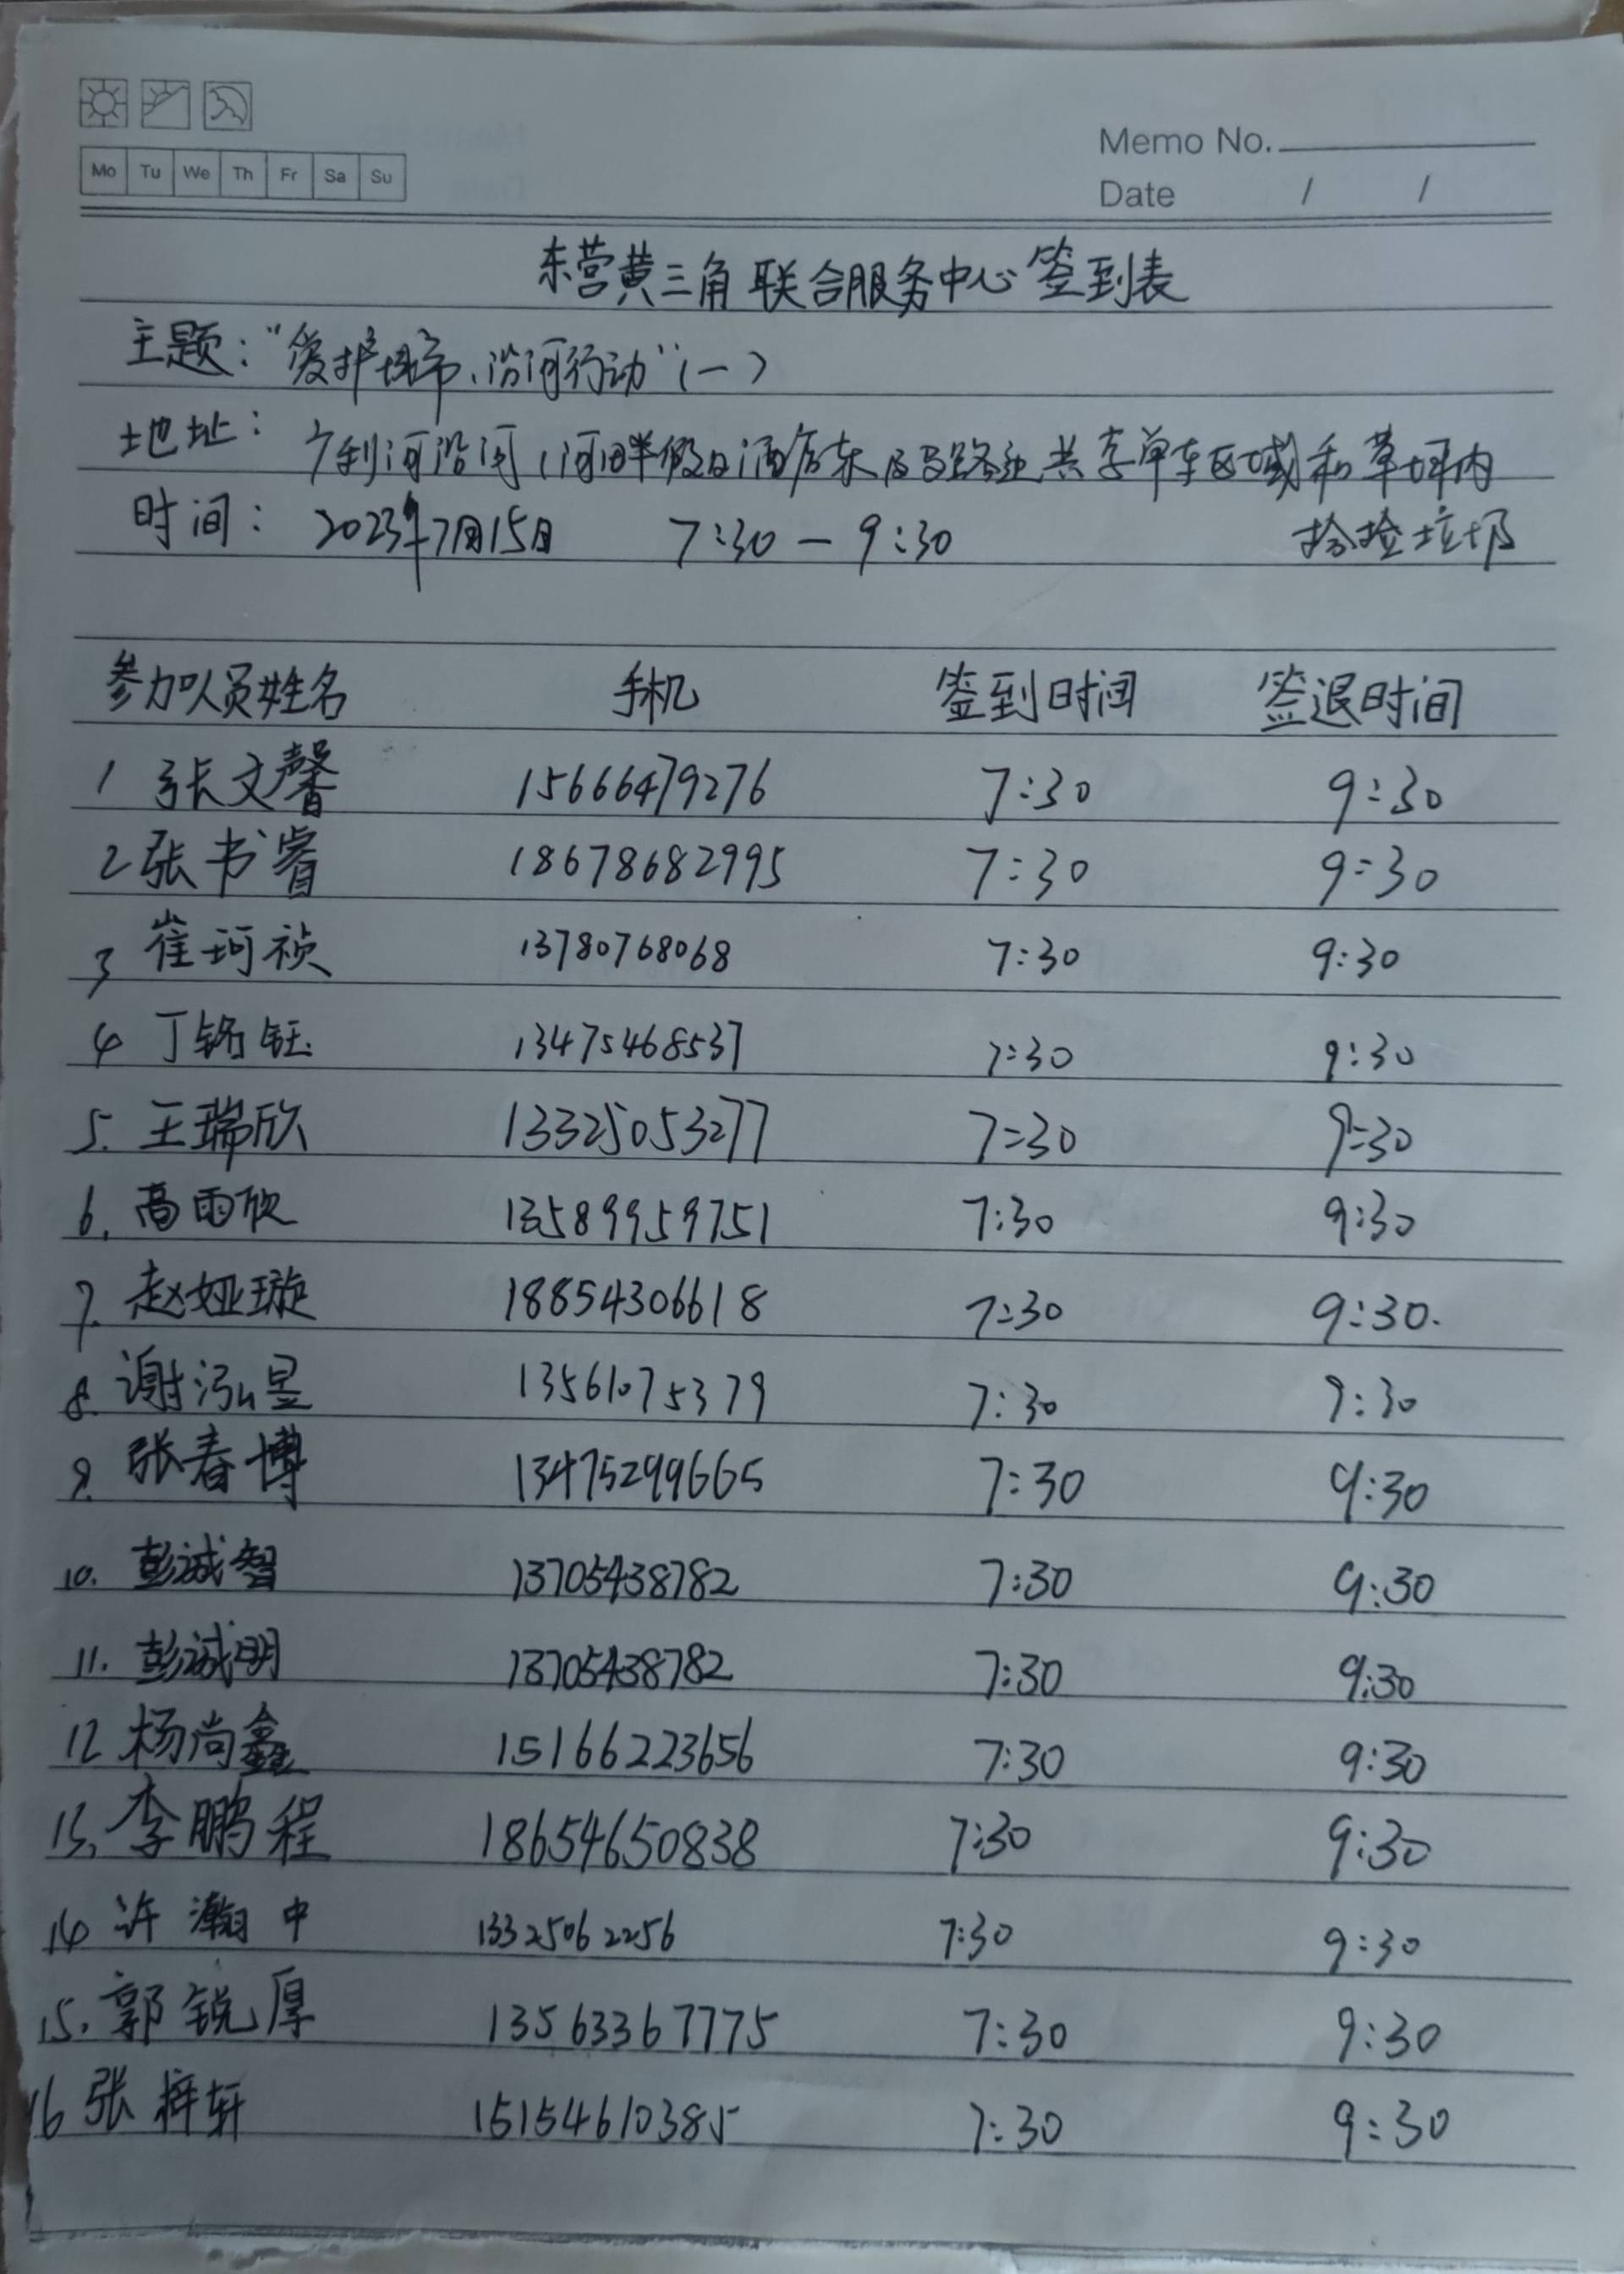 Memo No.
Mo Tu We Th Fr Sa Su
Date / /
东营黄三角联合服务中心签到表
主题：“爱护城市、沿河行动”（一）
地址：广利河沿河（河畔假日酒店东及马路边共享单车区域和草坪内
时间：2023年7月15日 7:30－9:30 捡捡垃圾
参加人员姓名 手机 签到时间 签退时间
1 张文馨 15666479276 7:30 9:30
2 张书睿 18678682995 7:30 9:30
3 崔珂祯 13780768068 7:30 9:30
4 丁铭钰 13475468537 7:30 9:30
5. 王瑞欣 13325053277 7:30 9:30
6. 高雨欣 13589959751 7:30 9:30
7. 赵娅璇 18854306618 7:30 9:30.
8. 谢泓昱 13561075379 7:30 9:30
9. 张春博 13475299665 7:30 9:30
10. 彭诚智 13705438782 7:30 9:30
11. 彭诚明 13705438782 7:30 9:30
12 杨尚鑫 15166223656 7:30 9:30
13. 李鹏程 18654650838 7:30 9:30
14 许瀚中 13325062256 7:30 9:30
15. 郭锐厚 13563367775 7:30 9:30
16 张梓轩 15154610385 7:30 9:30